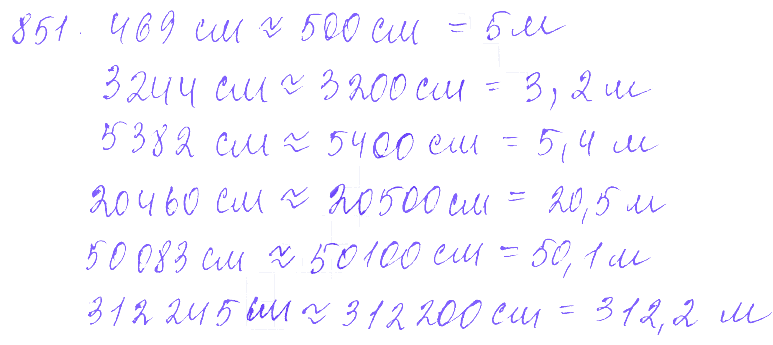 851. 469 см ≈ 500 см = 5 м
3244 см ≈ 3200 см = 3,2 м
5382 см ≈ 5400 см = 5,4 м
20460 см ≈ 20500 см = 20,5 м
50083 см ≈ 50100 см = 50,1 м
312245 см ≈ 312200 см = 312,2 м